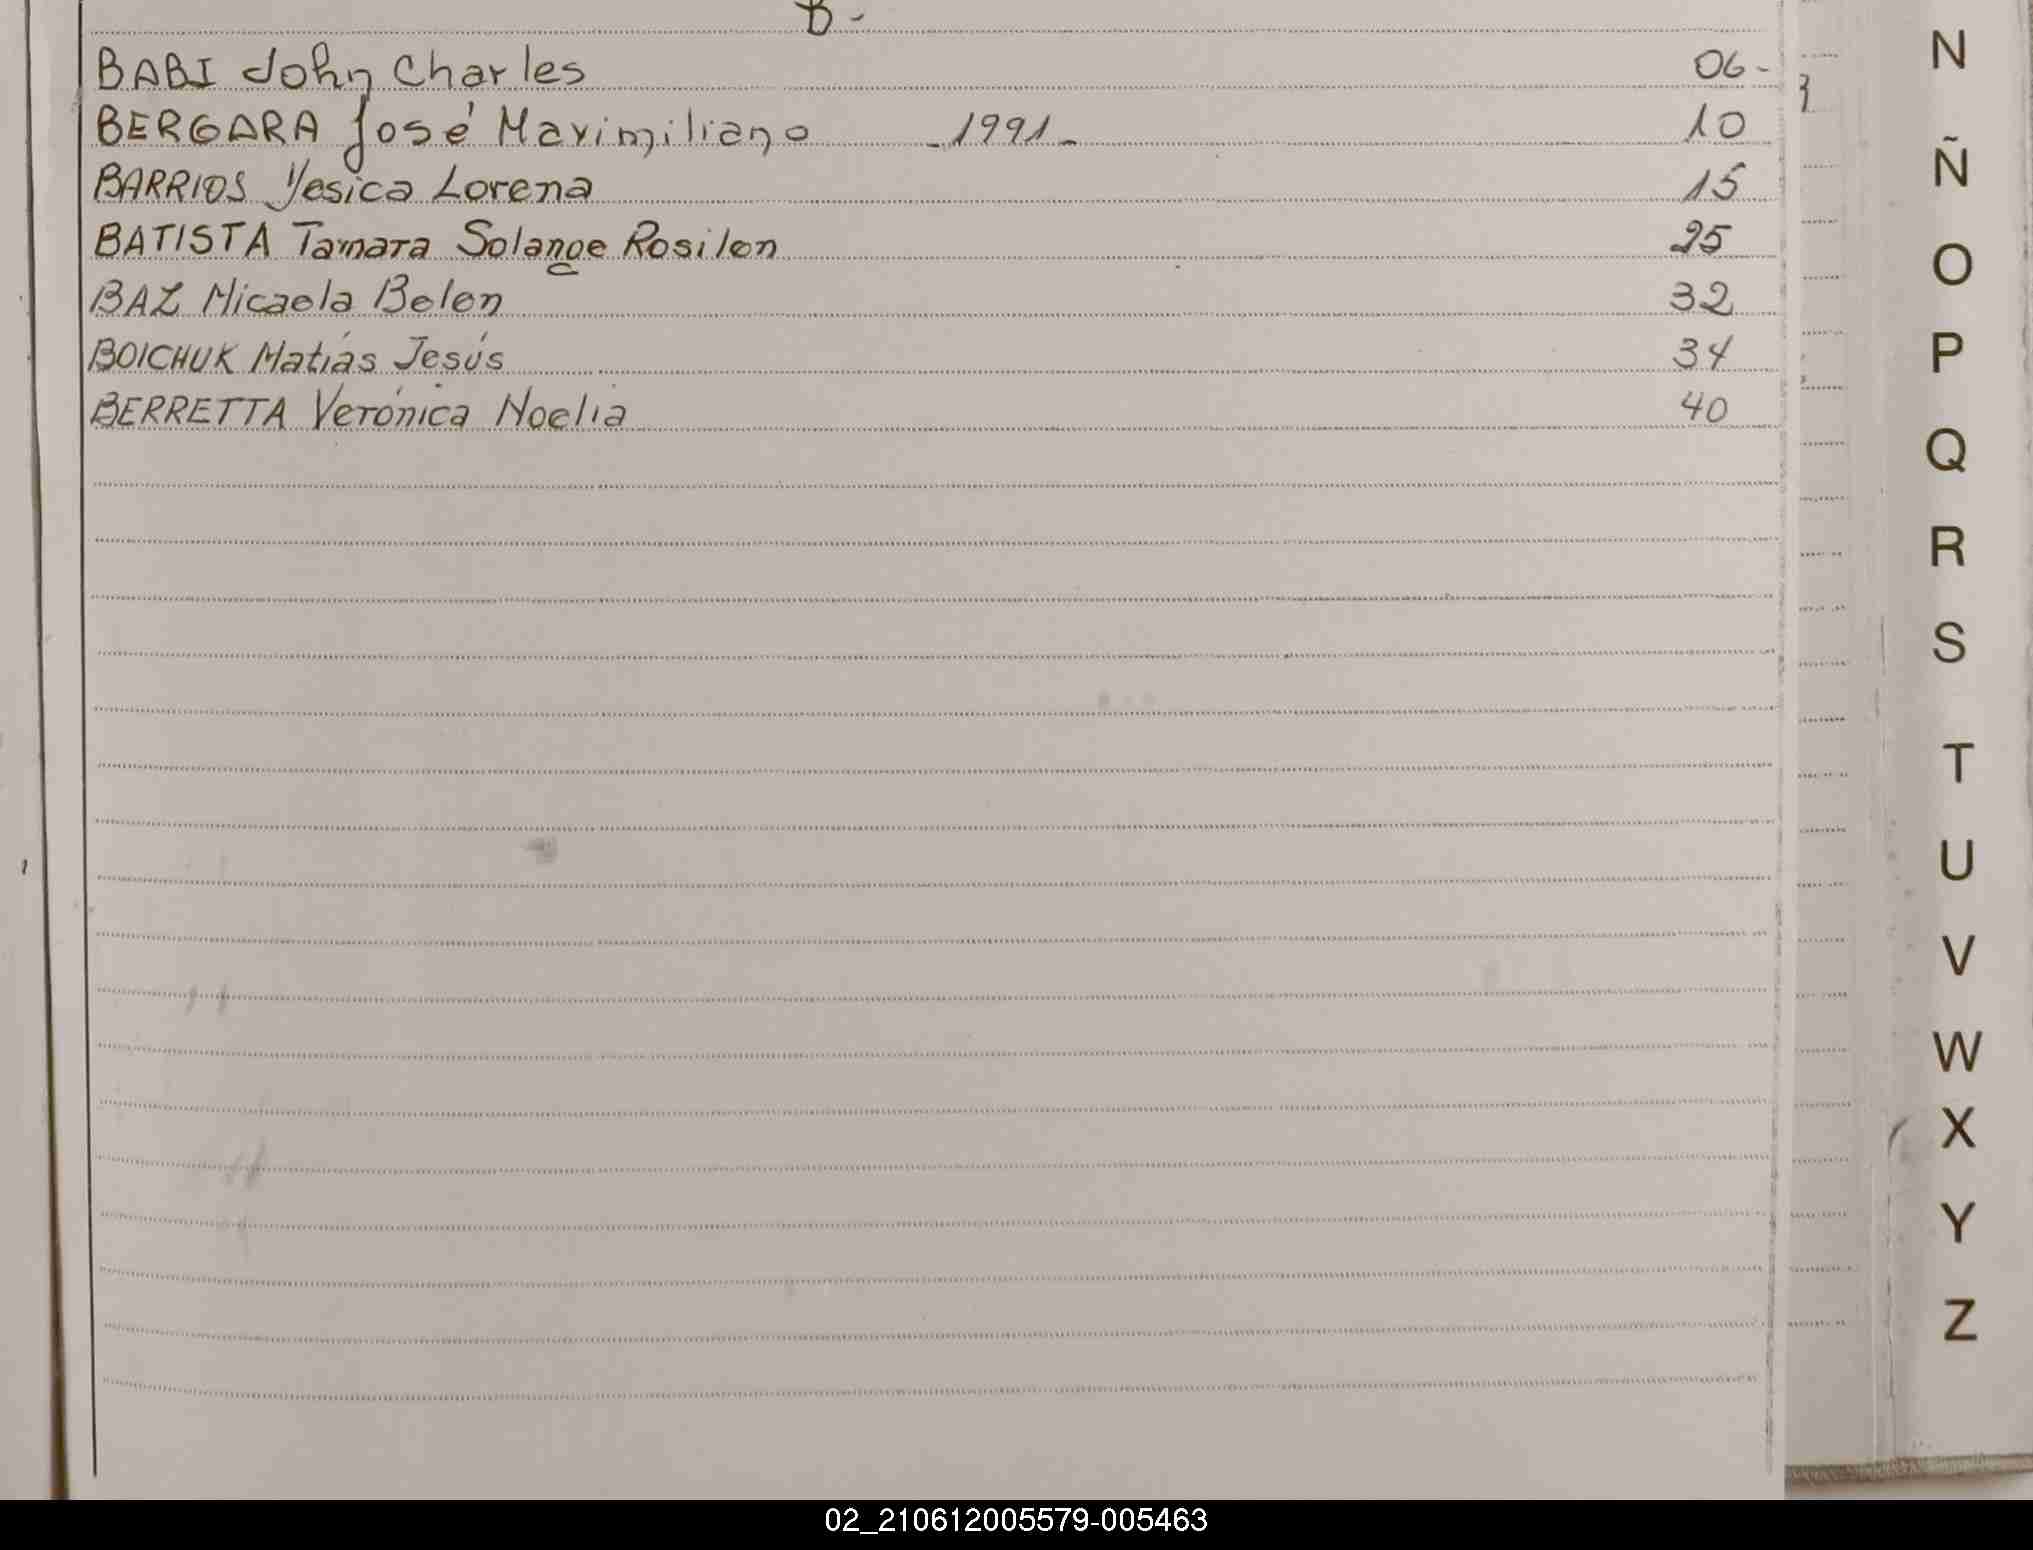 B-
BABI John Charles 06-
BERGARA José Maximiliano -1991- 10
BARRIOS Yesica Lorena 15
BATISTA Tamara Solange Rosilen 25
BAZ Micaela Belen 32
BOICHUK Matías Jesús 34
BERRETTA Verónica Noelia 40
N
Ñ
O
P
Q
R
S
T
U
V
W
X
Y
Z
02_210612005579-005463